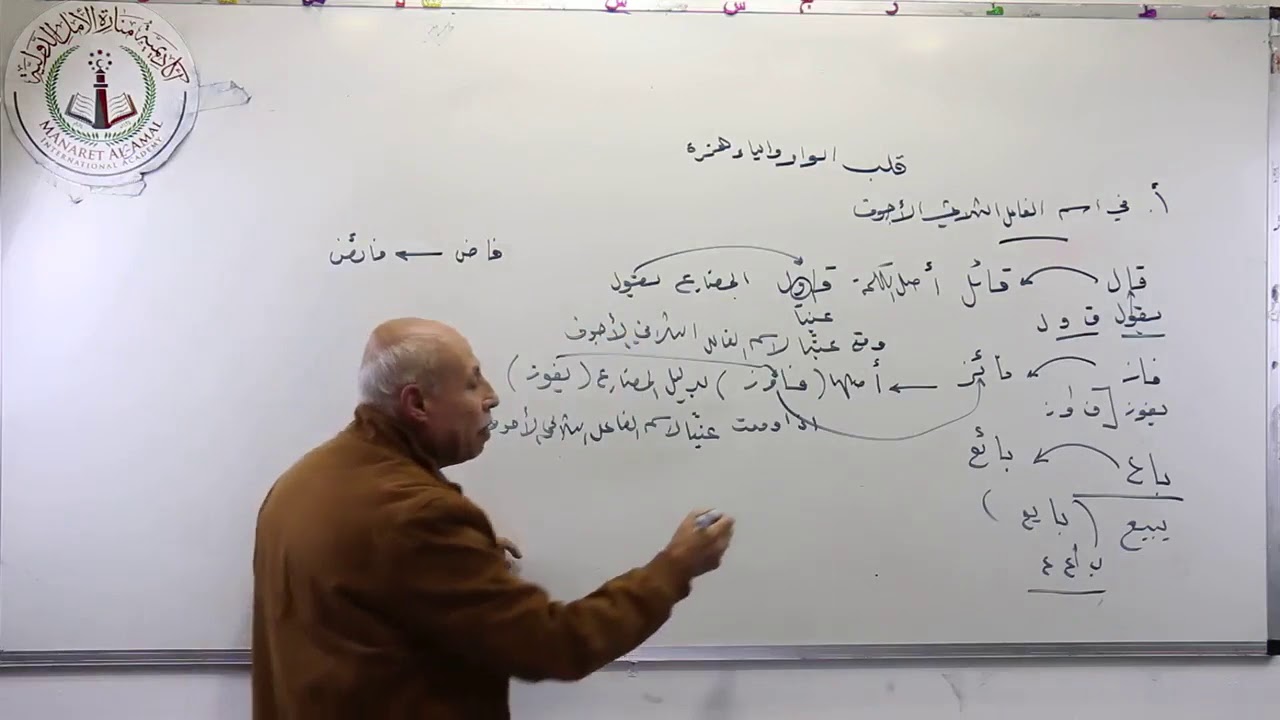 أكاديمية منارة الأمل الدولية
MANARET AL-AMAL
INTERNATIONAL ACADEMY
قلب الواو والياء همزة
أ. في اسم الفاعل الثلاثي الأجوف
قال ← قائل أصل الكلمة قاول المضارع يقول
فاض ← فائض
يقول ق و ل
عينًا
وقع عينًا لاسم الفاعل الثلاثي الأجوف
فاز ← فائز ← أصلها (فاوز) بدليل المضارع (يفوز)
يفوز [ف و ز
اذا وقعت عينًا لاسم الفاعل الثلاثي الأجوف
باع ← بائع
يبيع (بايع)